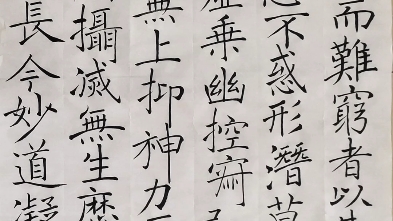 而難窮者以
不惑形潛莫
虛乘幽控寂
無上抑神力
攝滅無生歷
長今妙道凝